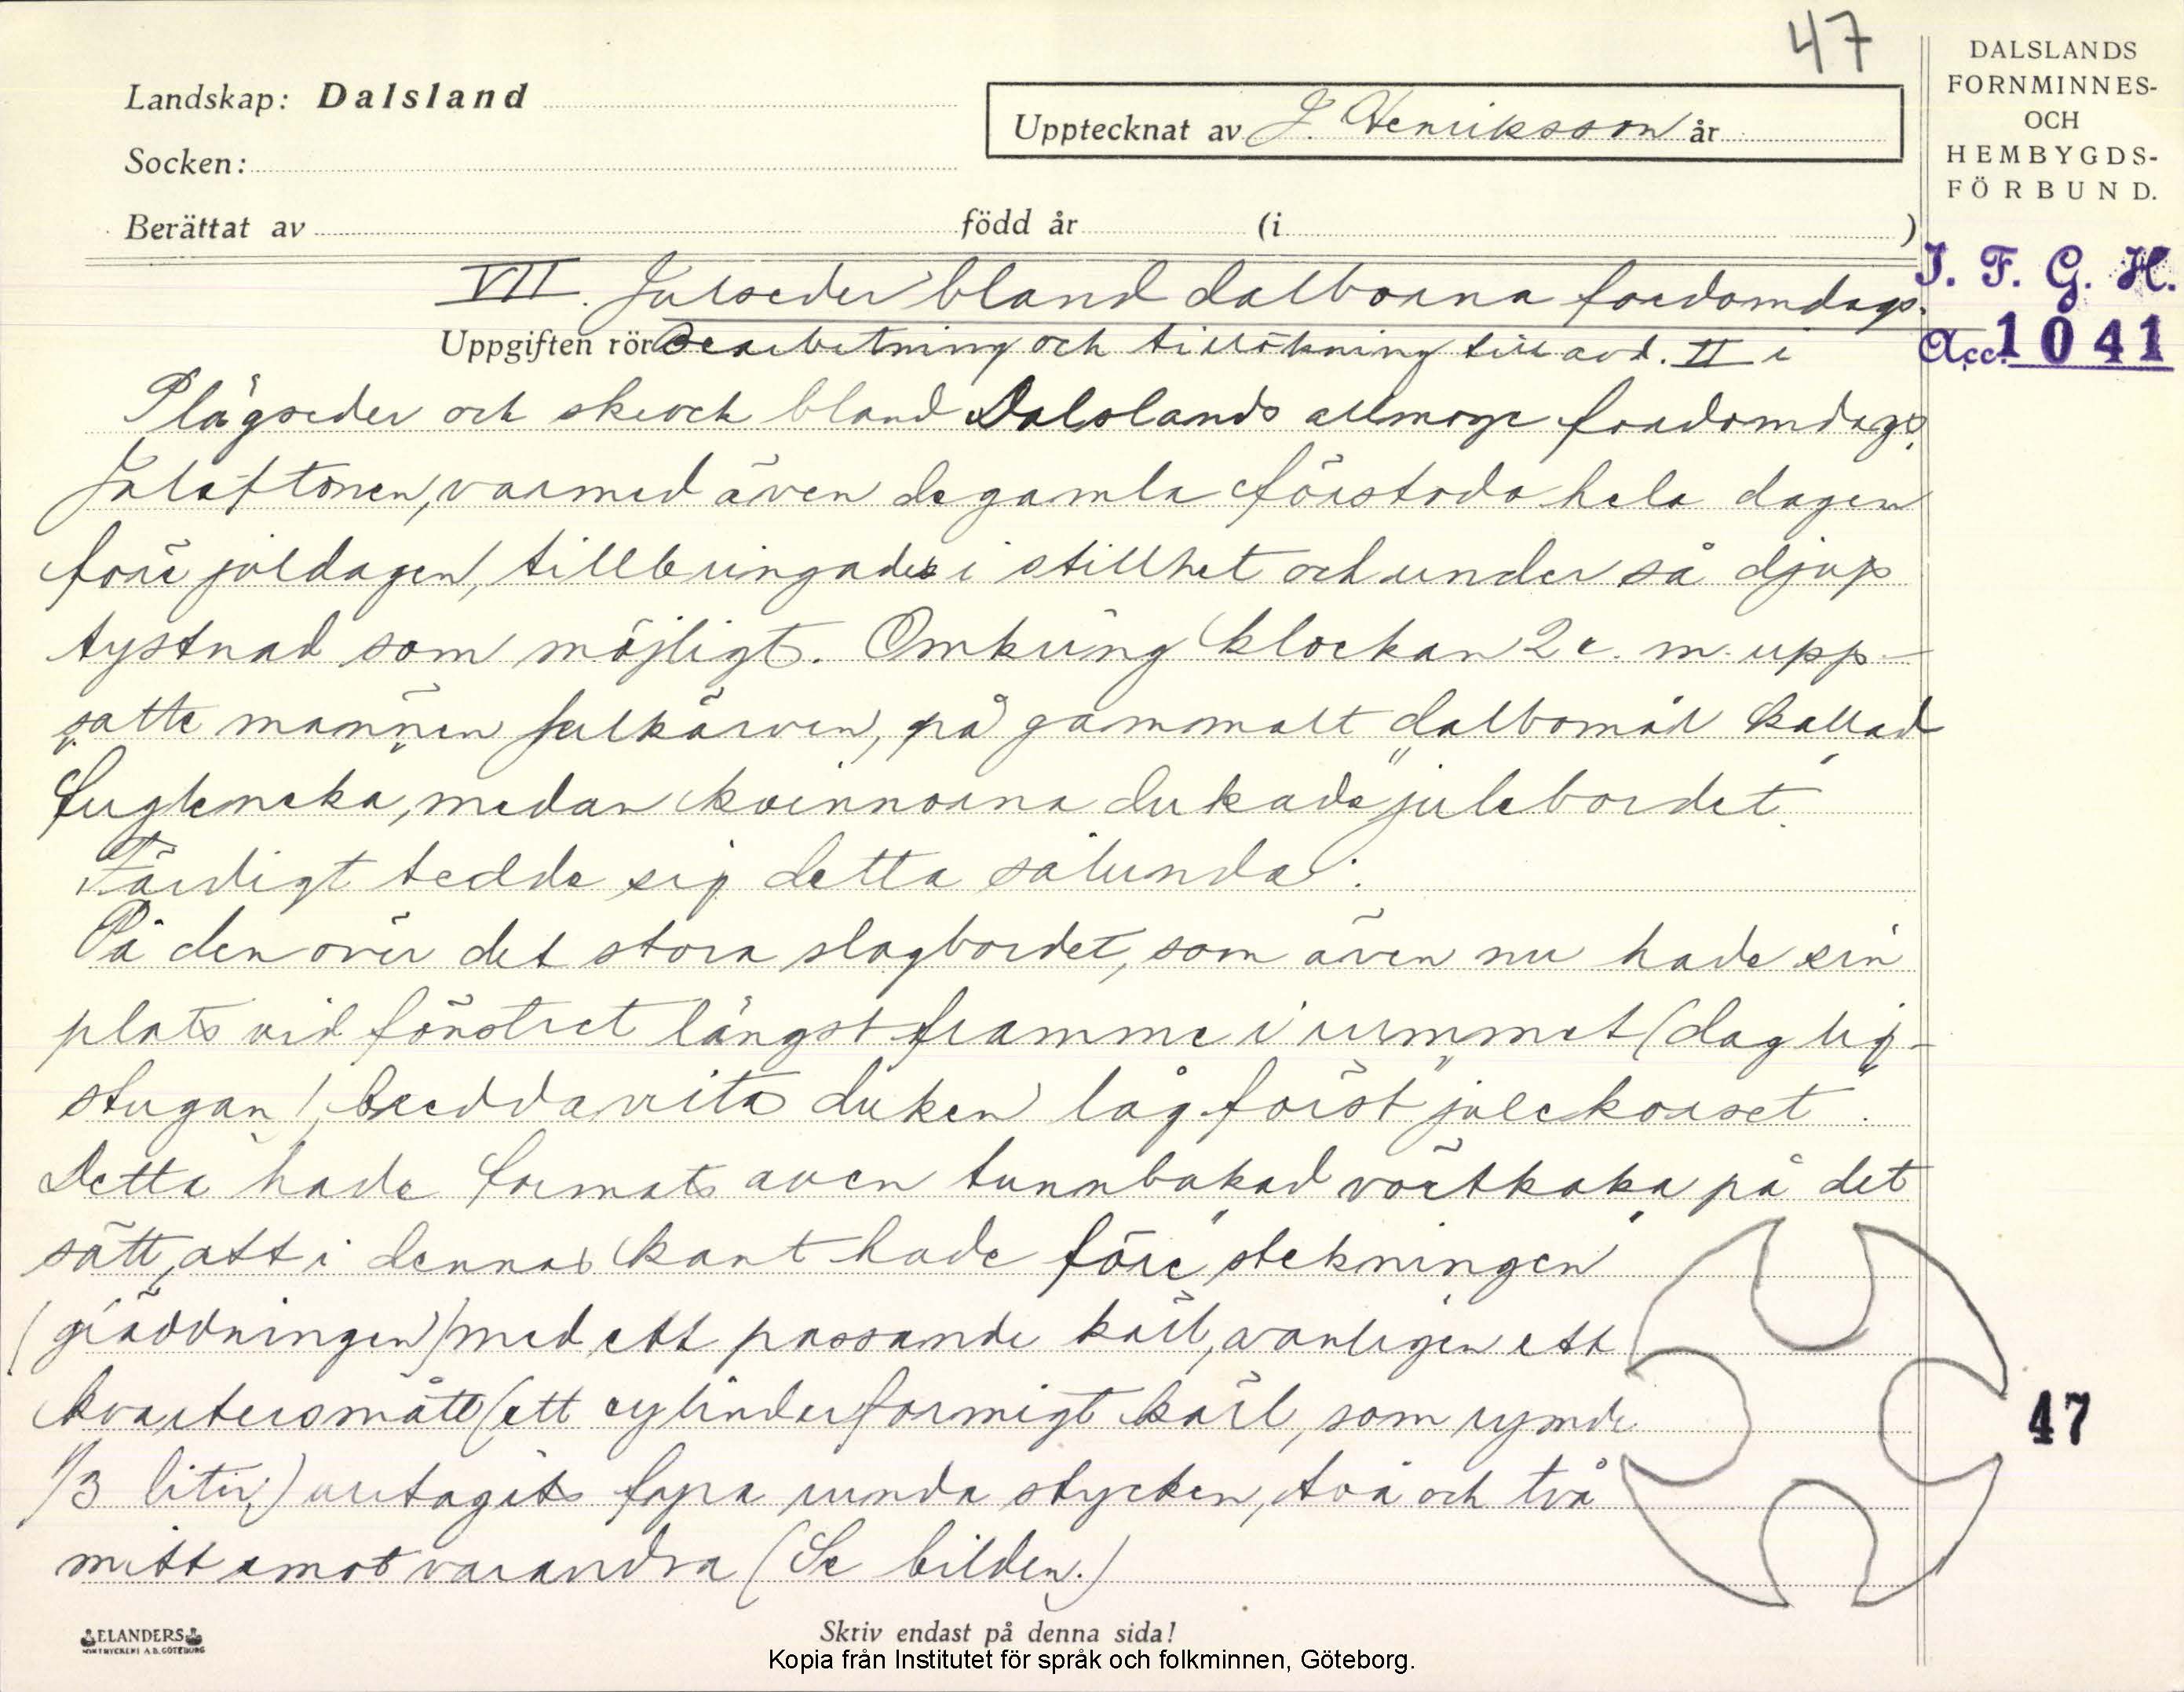 47
DALSLANDS
FORNMINNES-
OCH
HEMBYGDS-
FÖRBUND.
Landskap: Dalsland
Upptecknat av J. Henriksson år
Socken:
Berättat av född år (i )
I. F. G. H.
Acc. 1041
VII. Julseder bland dalboarna fordomdags.
Uppgiften rör Bearbetning och tillökning till avd. II i
Plägseder och skrock bland Dalslands allmoge fordomdags.
Julaftonen, varmed även de gamla förstodo hela dagen
före juldagen, tillbringades i stillhet och under så djup
tystnad som möjligt. Omkring klockan 2 e. m. upp-
satte männen julkärven, på gammalt dalbomål kallad
"fugleneka", medan kvinnorna dukade "julebordet".
Färdigt tedde sig detta sålunda:
På den över det stora slagbordet, som även nu hade sin
plats vid fönstret längst framme i rummet (daglig-
stugan), bredda vita duken låg först "julekorset".
Detta hade formats av en tunnbakad vörtkaka på det
sätt, att i dennas kant hade före "stekningen"
(gräddningen) med ett passande kärl, vanligen ett
kvartersmått (ett cylinderformigt kärl, som rymde
1/3 liter,) uttagits fyra runda stycken, två och två
mitt emot varandra (Se bilden.)
47
ELANDERS
BOKTRYCKERI A.B. GÖTEBORG
Skriv endast på denna sida!
Kopia från Institutet för språk och folkminnen, Göteborg.